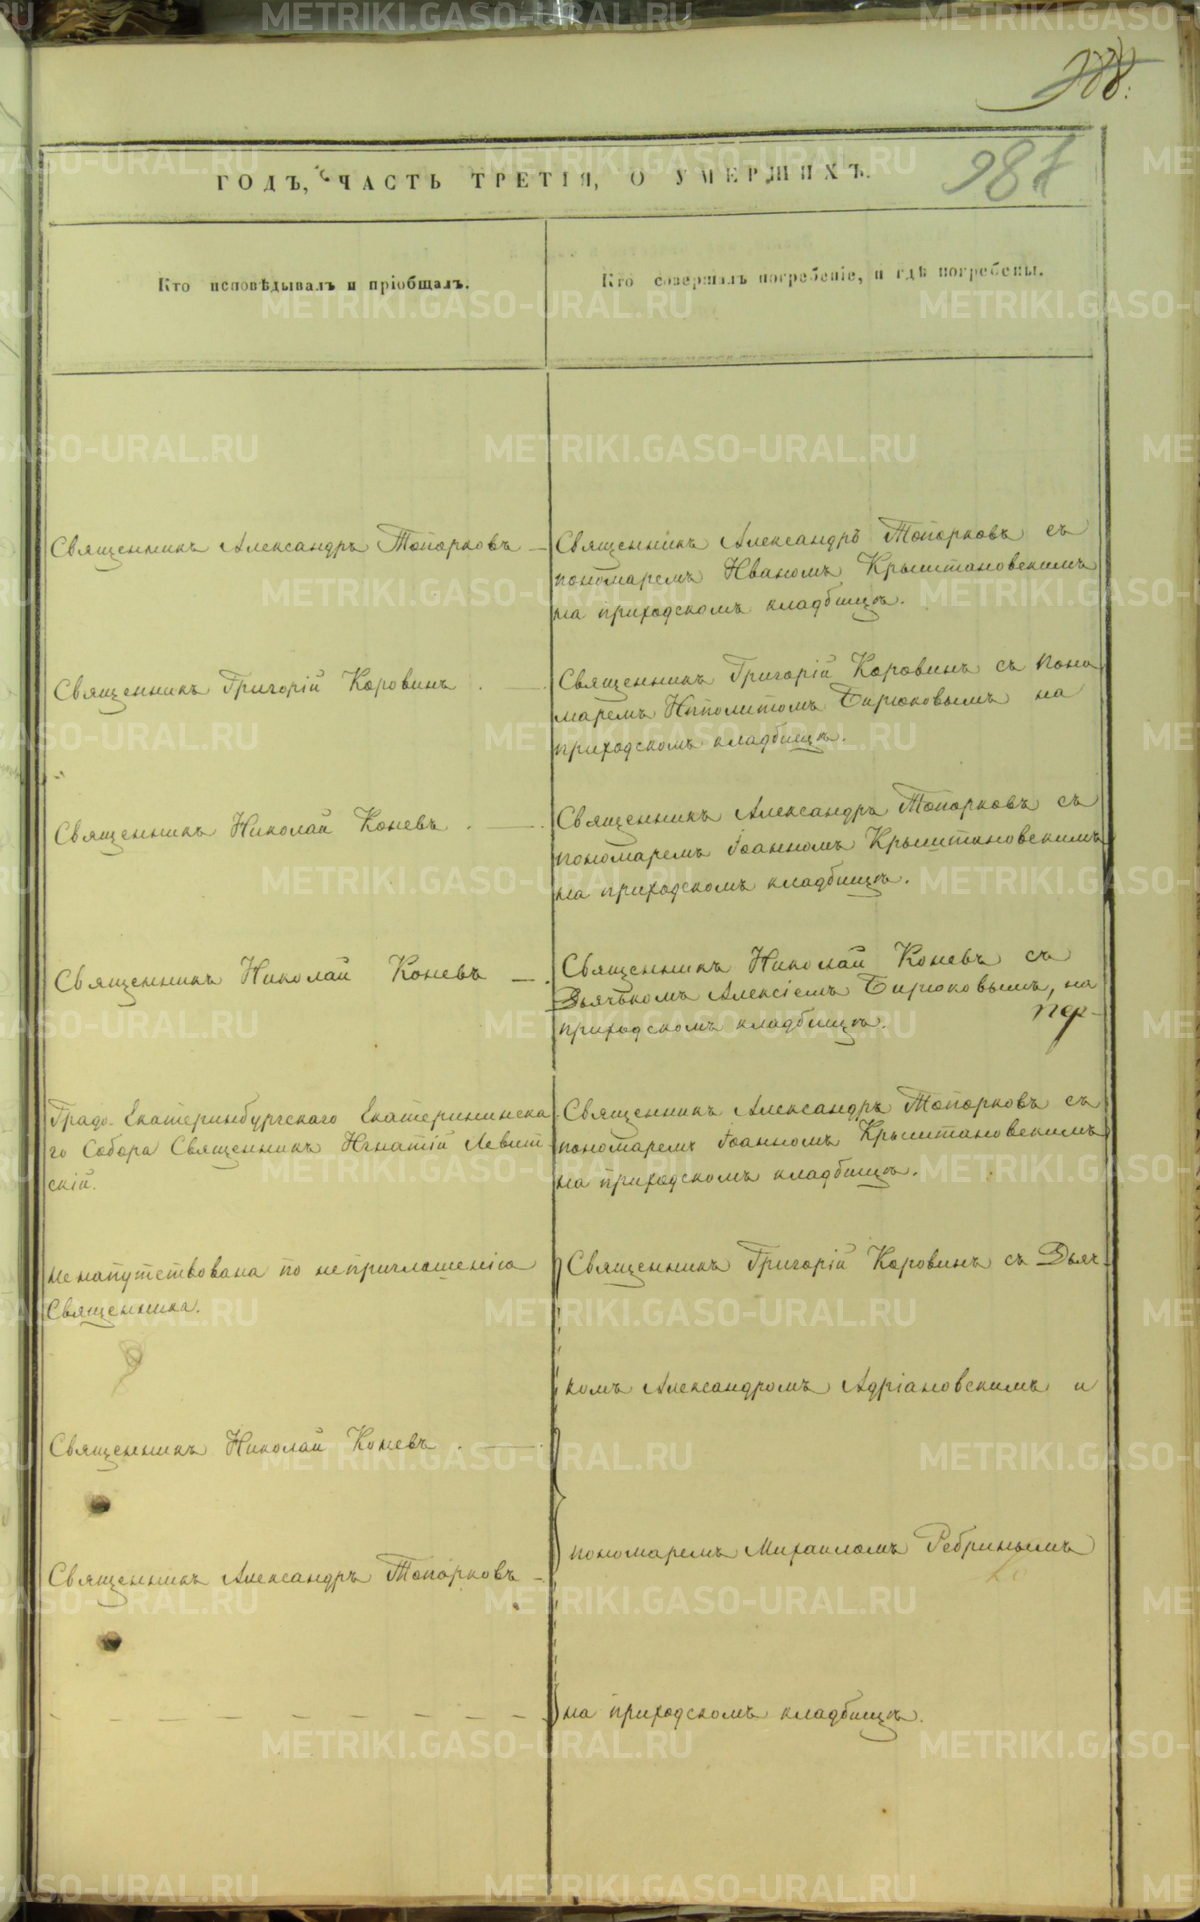 ГОДЪ, ЧАСТЬ ТРЕТІЯ, О УМЕРШИХЪ.
987
Кто исповѣдывалъ и пріобщалъ.
Кто совершалъ погребеніе, и гдѣ погребены.
Священникъ Александръ Топорковъ —
Священникъ Александръ Топорковъ съ
пономаремъ Иваномъ Крыштановскимъ
на приходскомъ кладбищѣ.
Священникъ Григорій Коровинъ
Священникъ Григорій Коровинъ съ поно
маремъ Ипполитомъ Бирюковымъ на
приходскомъ кладбищѣ.
Священникъ Николай Коневъ
Священникъ Александръ Топорковъ съ
пономаремъ Іоанномъ Крыштановскимъ
на приходскомъ кладбищѣ.
Священникъ Николай Коневъ —
Священникъ Николай Коневъ съ
Дьячькомъ Алексіемъ Бирюковымъ, на
приходскомъ кладбищѣ.
Градо-Екатеринбургскаго Екатерининска
го Собора Священникъ Игнатій Левит
скій.
Священникъ Александръ Топорковъ съ
пономаремъ Іоанномъ Крыштановскимъ
на приходскомъ кладбищѣ.
Не напутствована по неприглашенію
Священника.
Священникъ Николай Коневъ
Священникъ Александръ Топорковъ —
Священникъ Григорій Коровинъ съ Дьяч-
комъ Александромъ Адріановскимъ и
пономаремъ Михаиломъ Ребринымъ
на приходскомъ кладбищѣ.
METRIKI.GASO-URAL.RU